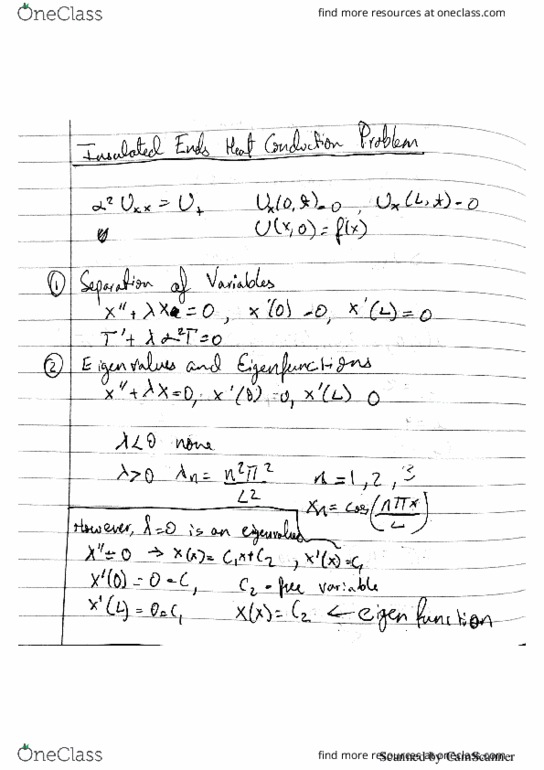 OneClass
find more resources at oneclass.com
Insulated Ends Heat Conduction Problem
α² Uxx = Ut   Ux(0,t)=0, Ux(L,t)=0
U(x,0)=f(x)
① Separation of Variables
X'' + λX=0, X'(0)=0, X'(L)=0
T' + λα²T=0
② Eigenvalues and Eigenfunctions
X'' + λX=0, X'(0)=0, X'(L) 0
λ<0 none
λ>0 λn = n²π²/L²   n=1,2,3
Xn = cos(nπx/L)
However, λ=0 is an eigenvalue
X''=0 → X(x)=C1x+C2, X'(x)=C1
X'(0)=0=C1   C2 - free variable
X'(L)=0=C1   X(x)=C2 ← eigenfunction
OneClass
find more resources at oneclass.com
Scanned by CamScanner